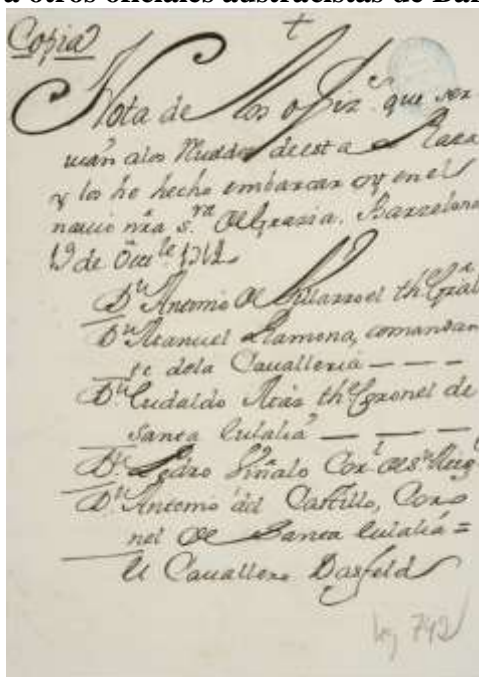 a otros oficiales austracistas de Bar
Copia
Nota de los ofiz.s que ser
uian alos deesta Plaza
y los he hecho embarcar oy en el
nauio nra s.ra de Grazia. Barzelona
19 de 1714
D.n Antonio de Villarroel th Gral
D.n Manuel Llamona, comandan
te dela Caualleria — — —
D.n Eudaldo Mas th Coronel de
Santa Eulalia — — —
D.n Pedro Viñalo Cor.l de S.n Mig
D.n Antonio del Castillo, Coro
nel de Santa Eulalia =
El Cauallero Dasfeld
leg 742